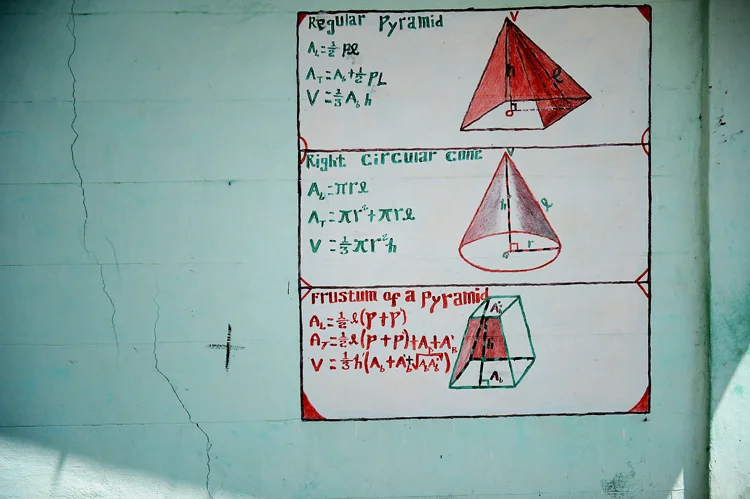 Regular Pyramid
A_L = ½ pℓ
A_T = A_b + ½ pL
V = ⅓ A_b h
V
h
ℓ
Right circular cone
A_L = πrℓ
A_T = πr² + πrℓ
V = ⅓ πr²h
V
h
ℓ
r
Frustum of a pyramid
A_L = ½ ℓ(p + p')
A_T = ½ ℓ(p + p') + A_b + A'_b
V = ⅓ h'(A_b + A'_b + √A_b A'_b)
A'_b
h
A_b